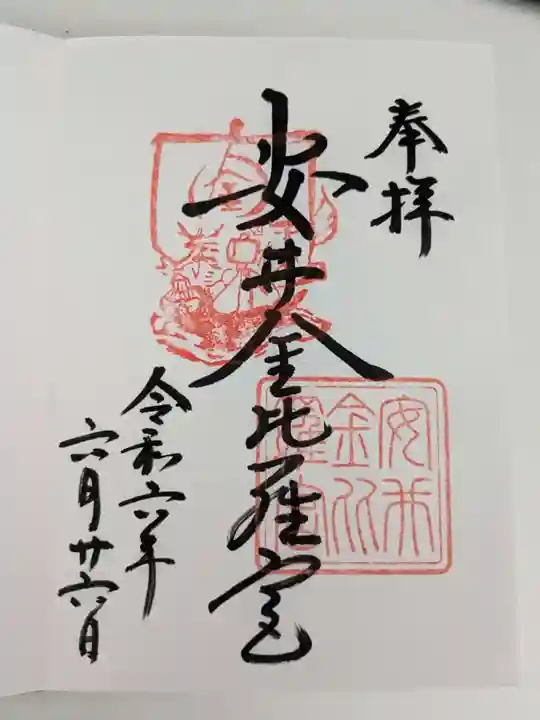 奉拝
安井金比羅宮
令和六年
六月廿六日
安井
金比
羅宮